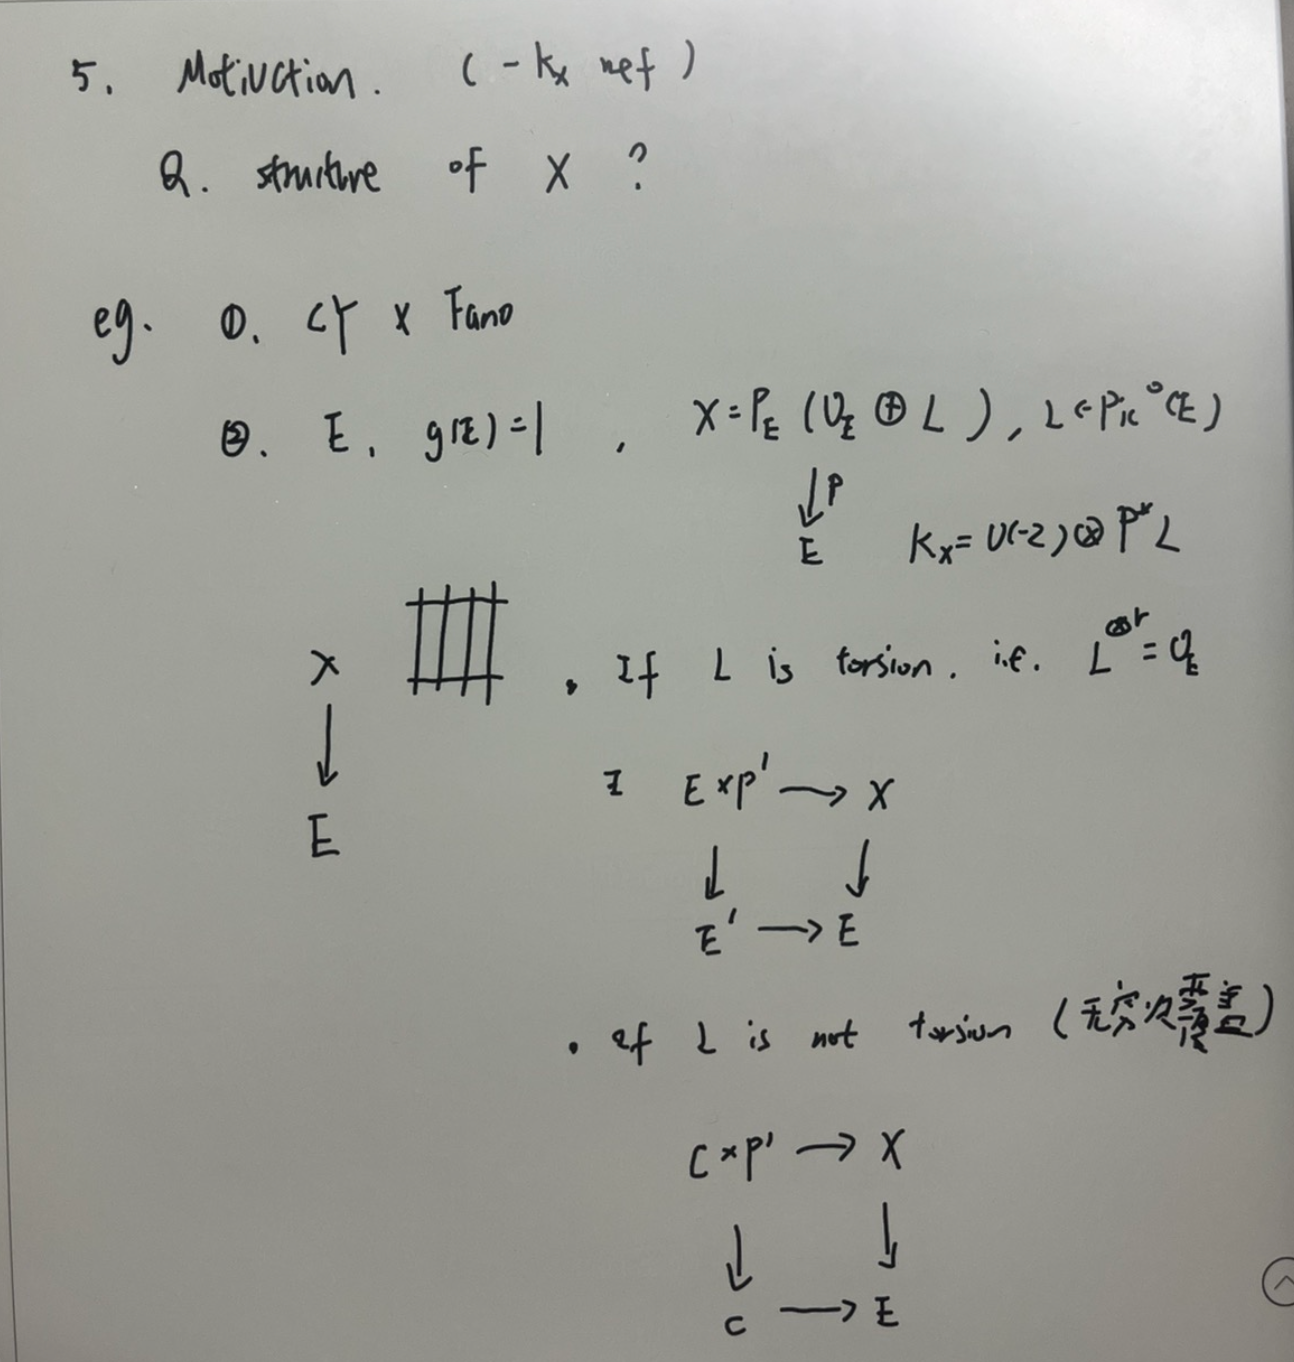 5. Motivction. (-Kx nef)
Q. struiture of X ?
eg. ①. CY x Fano
②. E, g(E)=1, X=P_E (O_E ⊕ L), L∈Pic°(E)
↓p
E K_X= O(-2)⊗P*L
X . If L is torsion. i.e. L^{⊗r}=O_E
↓
E
E×P' → X
↓ ↓
E' → E
. If L is not torsion (无穷次覆盖)
C×P' → X
↓ ↓
C → E